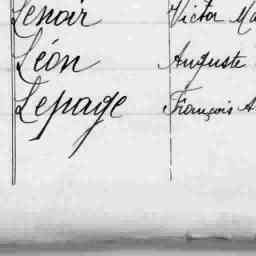 Lenoir Victor Ma
Léon Auguste
Lepage François A